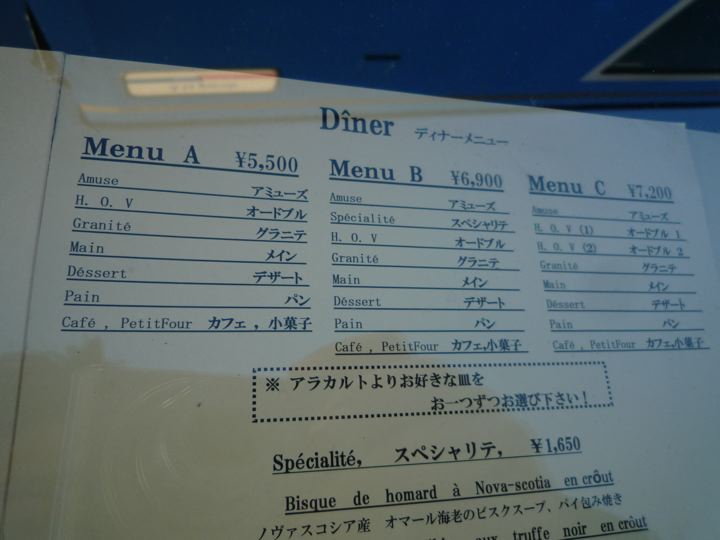 Dîner ディナーメニュー
Menu A ¥5,500
Amuse アミューズ
H. O. V オードブル
Granité グラニテ
Main メイン
Déssert デザート
Pain パン
Café , PetitFour カフェ , 小菓子
Menu B ¥6,900
Amuse アミューズ
Spécialité スペシャリテ
H. O. V オードブル
Granité グラニテ
Main メイン
Déssert デザート
Pain パン
Café , PetitFour カフェ,小菓子
Menu C ¥7,200
Amuse アミューズ
H. O. V (1) オードブル 1
H. O. V (2) オードブル 2
Granité グラニテ
Main メイン
Déssert デザート
Pain パン
Café , PetitFour カフェ,小菓子
※ アラカルトよりお好きな皿を
お一つずつお選び下さい!
Spécialité, スペシャリテ, ¥1,650
Bisque de homard à Nova-scotia en croût
ノヴァスコシア産 オマール海老のビスクスープ、パイ包み焼き
aux truffe noir en croût